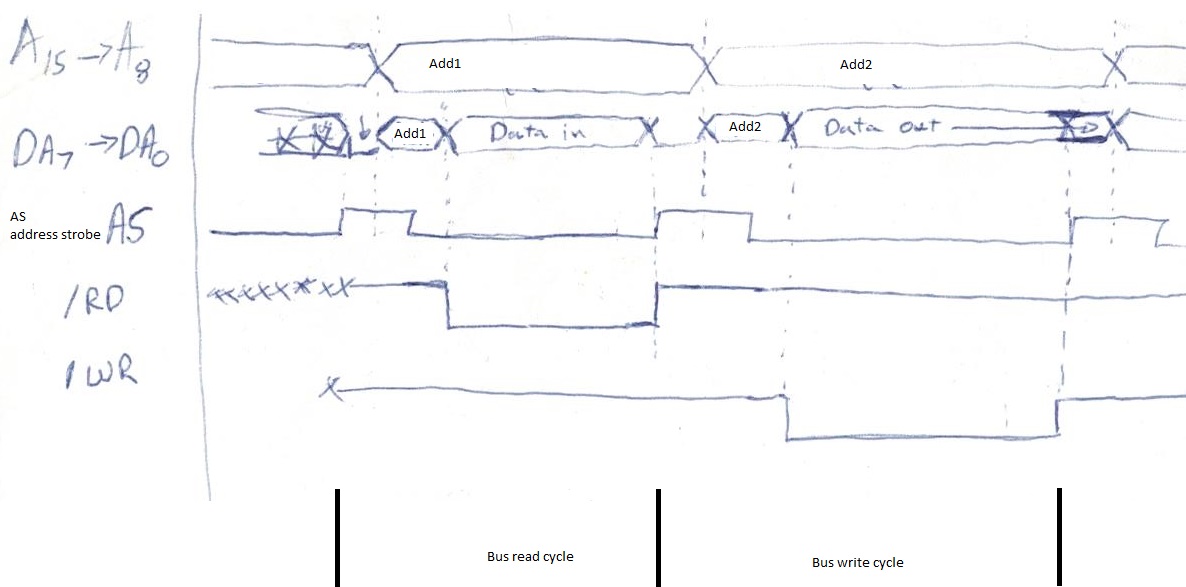 A15 → A8
Add1
Add2
DA7 → DA0
Add1
Data in
Add2
Data out
AS
address strobe
AS
/RD
/WR
Bus read cycle
Bus write cycle